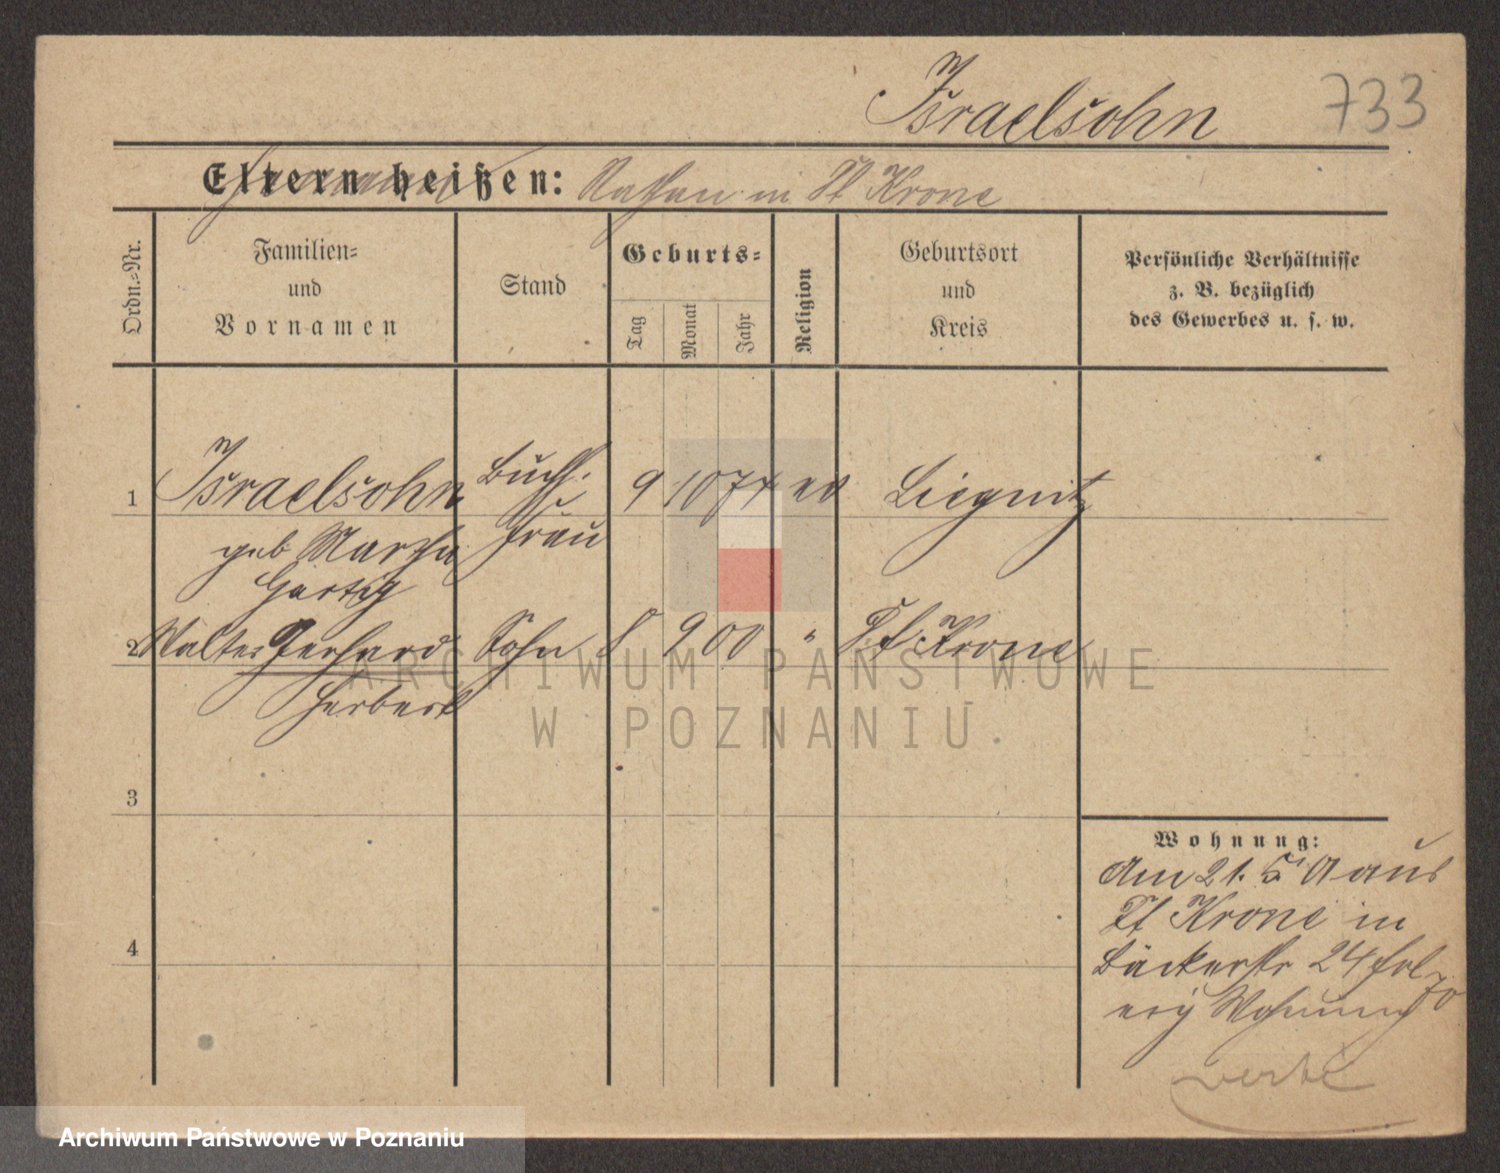 Israelsohn 733
Eltern heißen: Nathan in Dt Krone
Ordn.-Nr.
Familien-
und
Vornamen
Stand
Geburts-
Tag
Monat
Jahr
Religion
Geburtsort
und
Kreis
Persönliche Verhältnisse
z. B. bezüglich
des Gewerbes u. s. w.
1 Israelsohn Buchh. 9 10 74 ev Liegnitz
geb Martha Frau
Hartig
2 Walter Gerhard Sohn 8 9 00 " Dt Krone
Herbert
ARCHIWUM PAŃSTWOWE
W POZNANIU
3
4
Wohnung:
Am 21. 5. aus
Dt Krone in
Bäckerstr 24
Wohnung
Archiwum Państwowe w Poznaniu